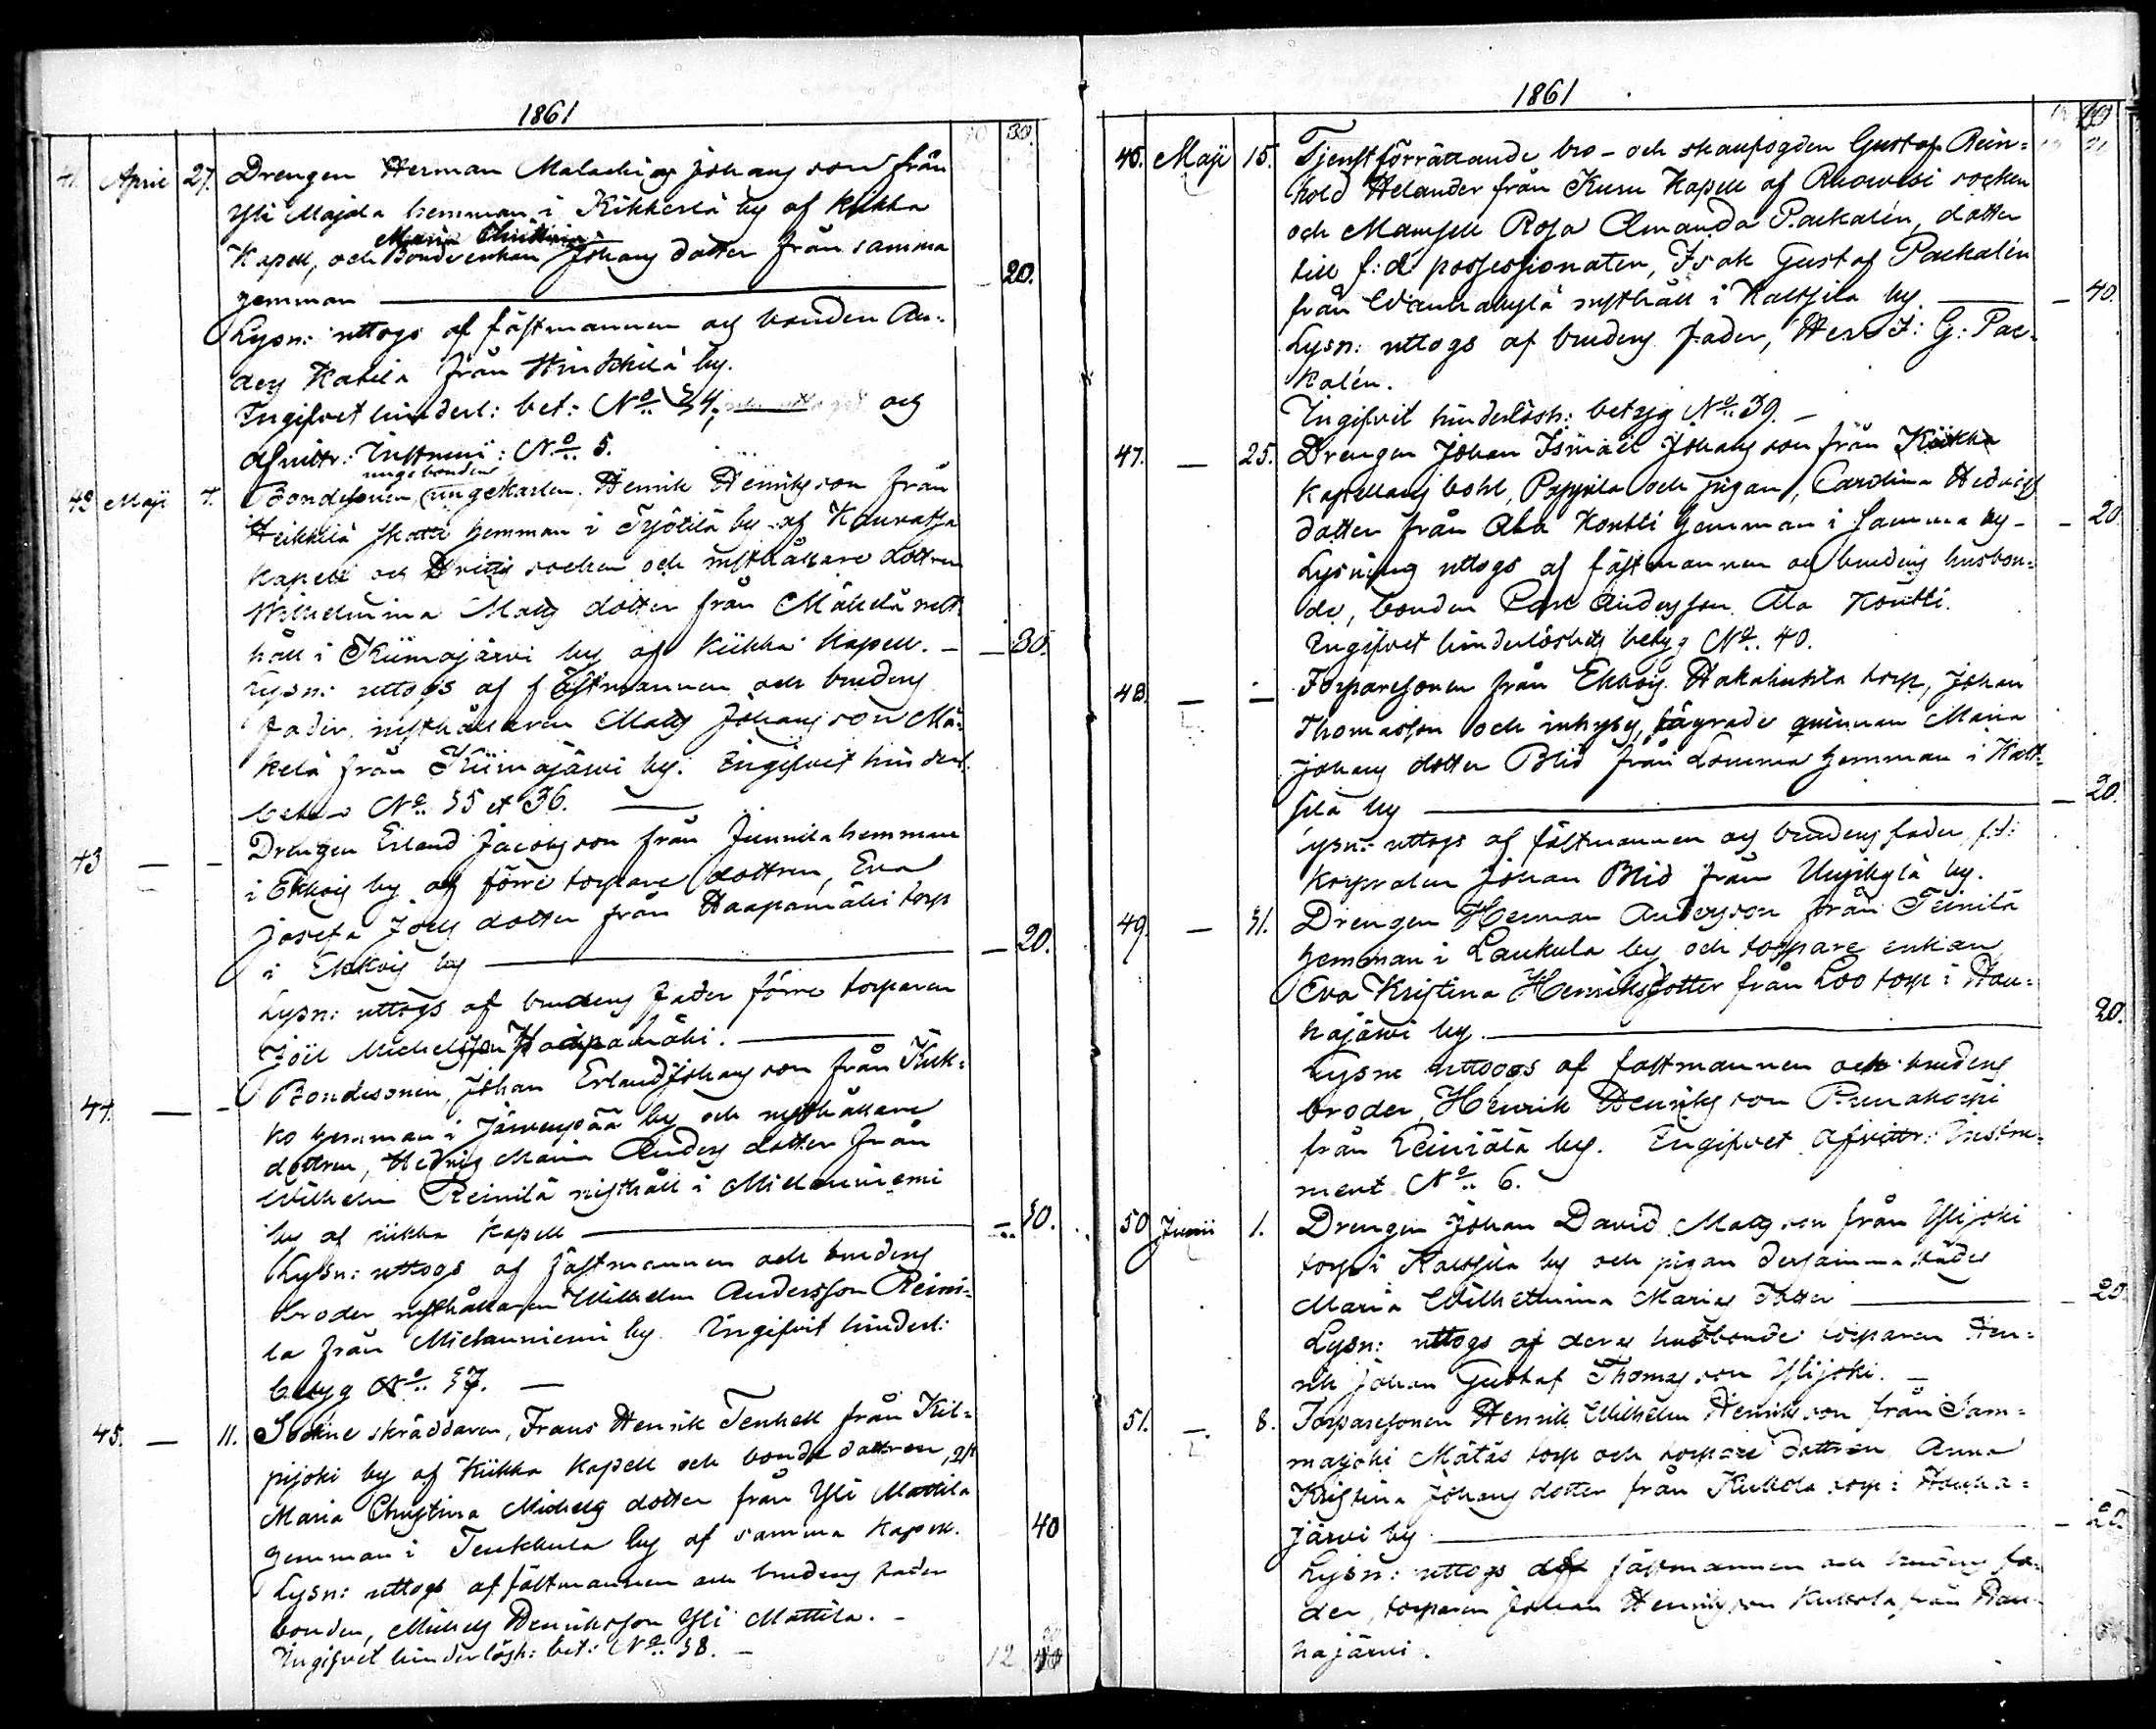 1861
30.
41. April 27. Drengen Herman Malachias Johansson från
Yli Majala hemman i Kikkerlä by af Kiikka
Maria Christina
Kapell, och Bondeenkan Johans dotter från samma
hemman — 20.
Lysn: uttogs af fästmannen och bonden An-
ders Katila från by.
Ingifvet hinderl: bet: No 34, och
afvittr: Instrum: No 5.
ungebonden
42 Maji 4. Bondesonen, ungekarlen, Henrik Henriksson från
Heikkilä skatte hemman i Työtilä by af Kauvatsa
Kapell och socken och rusthållare dottren
Wilhelmina Mats dotter från Mäkelä rust-
håll i Kiimajärvi by af Kiikka Kapell. — 30.
Lysn: uttogs af fästmannen och brudens
fader, rusthållaren Mats Johansson Mä-
kelä från Kiimajärvi by. Ingifvet hinderl.
No 35 et 36. —
43 — — Drengen Erland Jacobsson från Junnila hemman
i Ekkois by och förre torpare dottren, Eva
Josefa Joels dotter från Haapamäki torp
i Ekkois by — 20.
Lysn: uttogs af brudens fader förre torparen
Joël Michelsson Haapamäki. —
44. — — Bondesonen, Johan Erland Johansson från Kuk-
ko hemman i Järvenpää by och rusthållare
dottren, Hedvig Maria Anders dotter från
Wilhelm Reinilä rusthåll i Mielauniemi
by af Kiikka Kapell — 30.
Lysn: uttogs af fästmannen och brudens
broder rusthållaren Wilhelm Andersson Reini-
lä från Mielauniemi by. Ingifvit hinderl:
betyg No 37. —
45. — 11. Sockne skräddaren, Frans Henrik Tenhell från Kil-
pijoki by af Kiikka Kapell och bonde dottren,
Maria Christina Michels dotter från Yli Mattila
hemman i Tenkkula by af samma Kapell. 40
Lysn: uttogs af fästmannen och brudens fader
bonden, Michel Henriksson Yli Mattila. —
Ingifvet hinderlösh: bet: No 38. — 12
1861
46. Maji 15. Tjenstförrättande bro- och skallfogden Gustaf Rein-
hold Helander från Kuru Kapell af Ruovesi socken
och Mamsell Rosa Amanda Packalén, dotter
till f:d possessionaten, Isak Gustaf Packalén
från Wanhakylä rusthåll i Kaltsila by. — 40.
Lysn: uttogs af brudens fader, Herr I: G: Pac-
kalén.
Ingifvit hinderlösh: betyg No 39. —
47. — 25. Drengen Johan Ismael Johansson från Kiikka
Kapellans bohl, Pappila och pigan, Carolina Hedvigs
dotter från Ala Kontti hemman i samma by — 20
Lysning uttogs af fästmannen och brudens husbon-
de, bonden Carl Andersson Ala Kontti.
Ingifvet hinderlöshets betyg No 40.
48 — — Torparesonen från Ekkois Hakahuhta torp, Johan
Thomasson och inhyses, lägrade qvinnan Maria
Johans dotter Blid från Lomma hemman i Kalt-
sila by — 20.
Lysn: uttogs af fästmannen och brudens fader, f.d:
korpralen Johan Blid från Uusikylä by.
49. — 31. Drengen Herman Andersson från Teinilä
hemman i Laukula by och torpare enkan
Eva Kristina Henriksdotter från Loo torp i Hau-
hajärvi by. — 20.
Lysn: uttogs af fästmannen och brudens
broder, Henrik Henriksson
från by. Ingifvet Afvittr: Instru-
ment No 6.
50 Junii 1. Drengen Johan David Matsson från Ylijoki
torp i Kaltsila by och pigan dersamma städes
Maria Wilhelmina Marias dotter — 20
Lysn: uttogs af deras husbonde torparen Hen-
rik Johan Gustaf Thomasson Ylijoki. —
51. — 8. Torparesonen Henrik Wilhelm Henriksson från Sam-
maljoki Mätäs torp och torpare dottren Anna
Kristina Johans dotter från Kukola torp i Hauha-
järvi by — 20.
Lysn: uttogs af fästmannen och brudens fa-
der, torparen Johan Henriksson Kukola från Hau-
hajärvi.